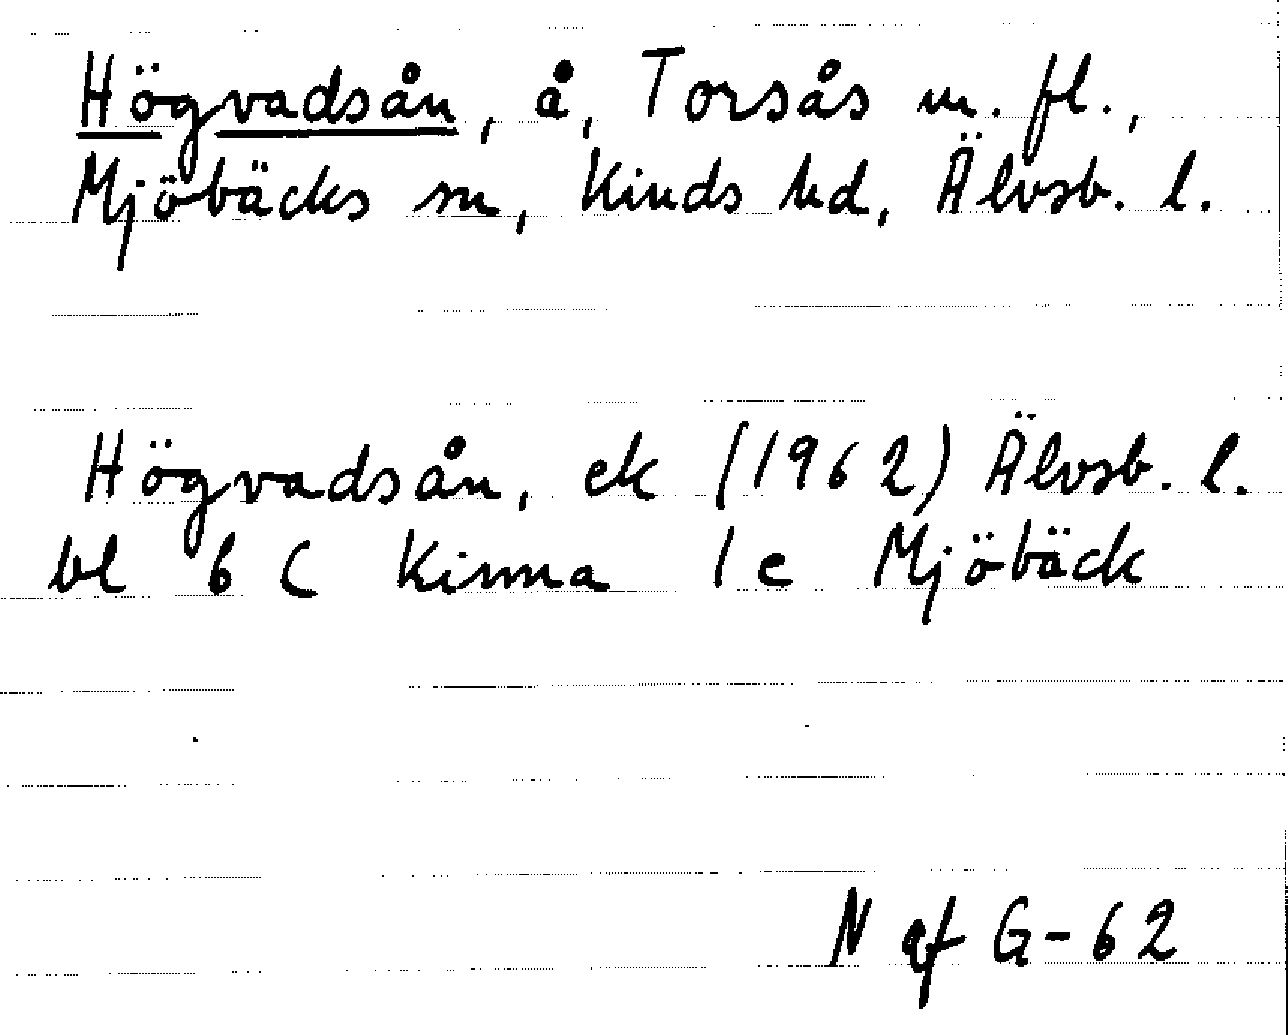 Högvadsån, å, Torsås m. fl.,
Mjöbäcks sn, Kinds hd, Älvsb. l.
Högvadsån, ek (1962) Älvsb. l.
bl 6 C Kinna 1 e Mjöbäck
N af G-62